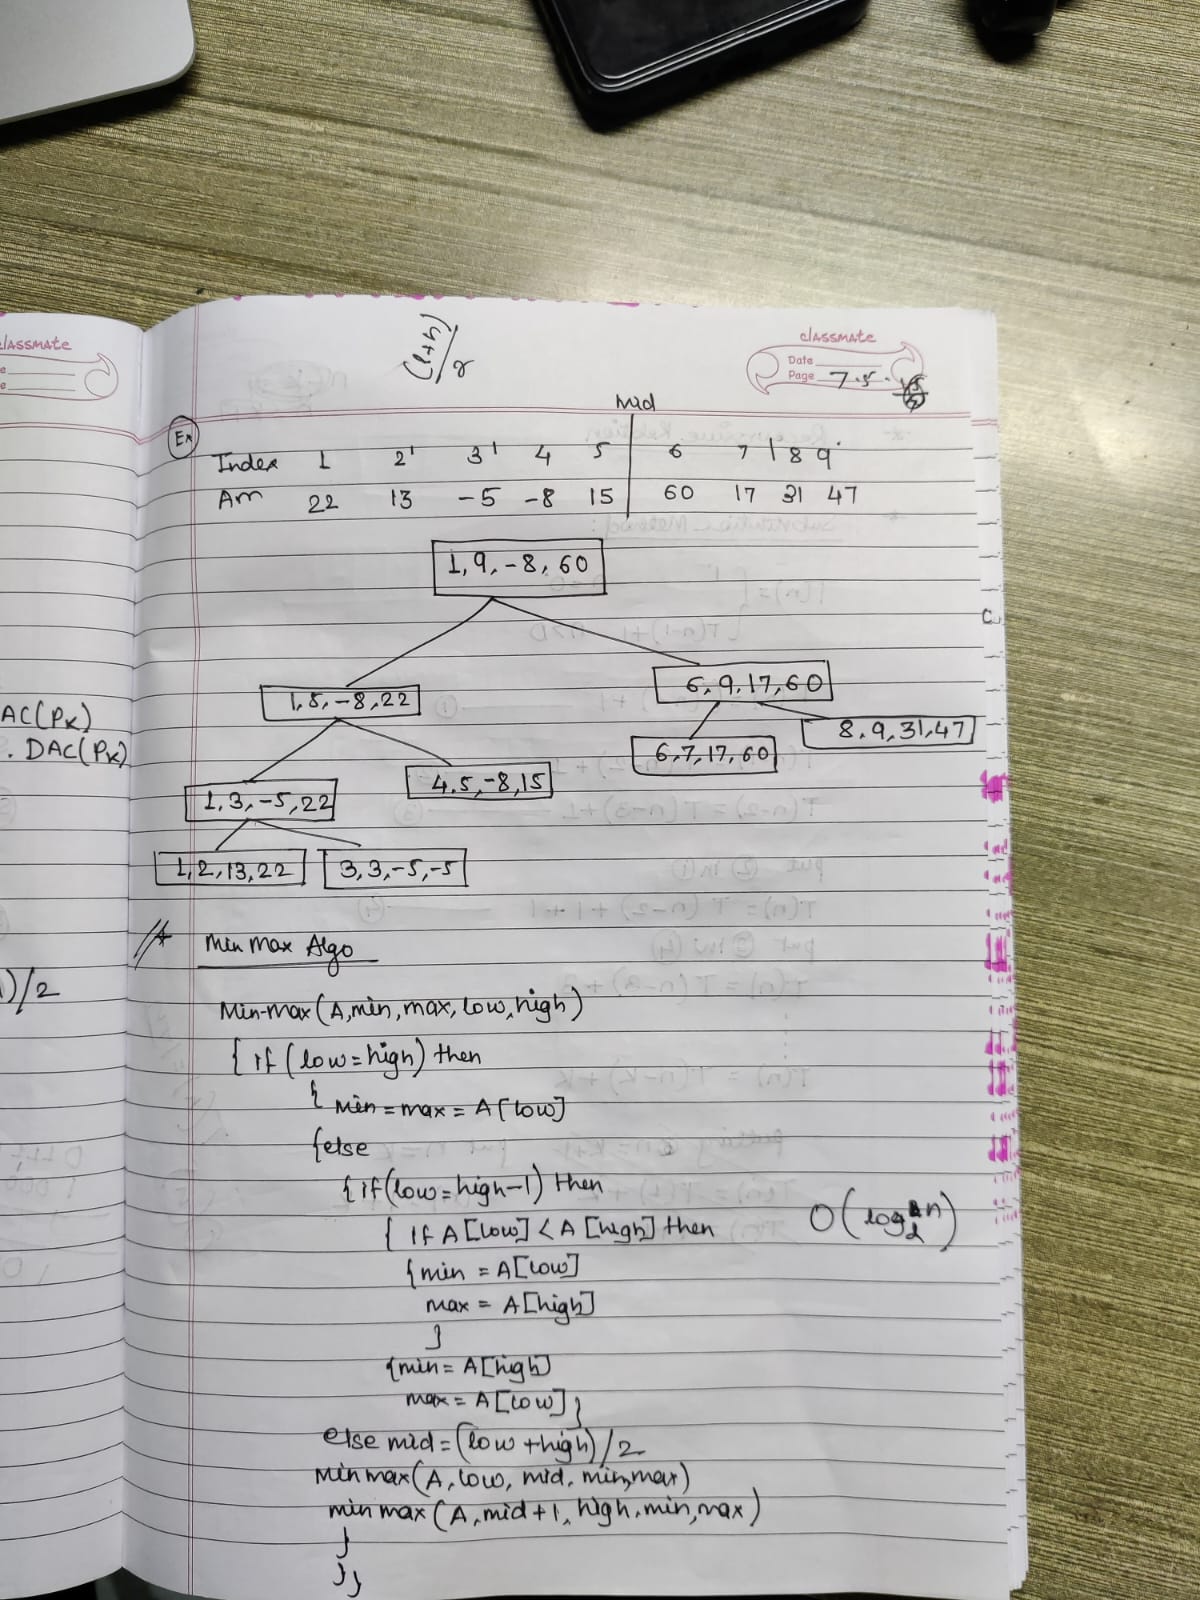 classmate
Date
Page 7.5.
(l+h)/2
classmate
Mid
Ex
Index 1 2 3 4 5 6 7 8 9
Arr 22 13 -5 -8 15 60 17 31 47
1, 9, -8, 60
1, 5, -8, 22
6, 9, 17, 60
8, 9, 31, 47
6, 7, 17, 60
4, 5, -8, 15
1, 3, -5, 22
1, 2, 13, 22
3, 3, -5, -5
AC(Pk)
. DAC(Pk)
)/2
Min Max Algo
Min-max (A, min, max, low, high)
{ if (low = high) then
{ min = max = A[low]
{else
{ if (low = high-1) then
{ if A[low] < A[high] then
O(log2 n)
{min = A[low]
max = A[high]
}
{min = A[high]
max = A[low] }
else mid = (low + high)/2
Minmax(A, low, mid, min, max)
min max (A, mid+1, high, min, max)
}
}}